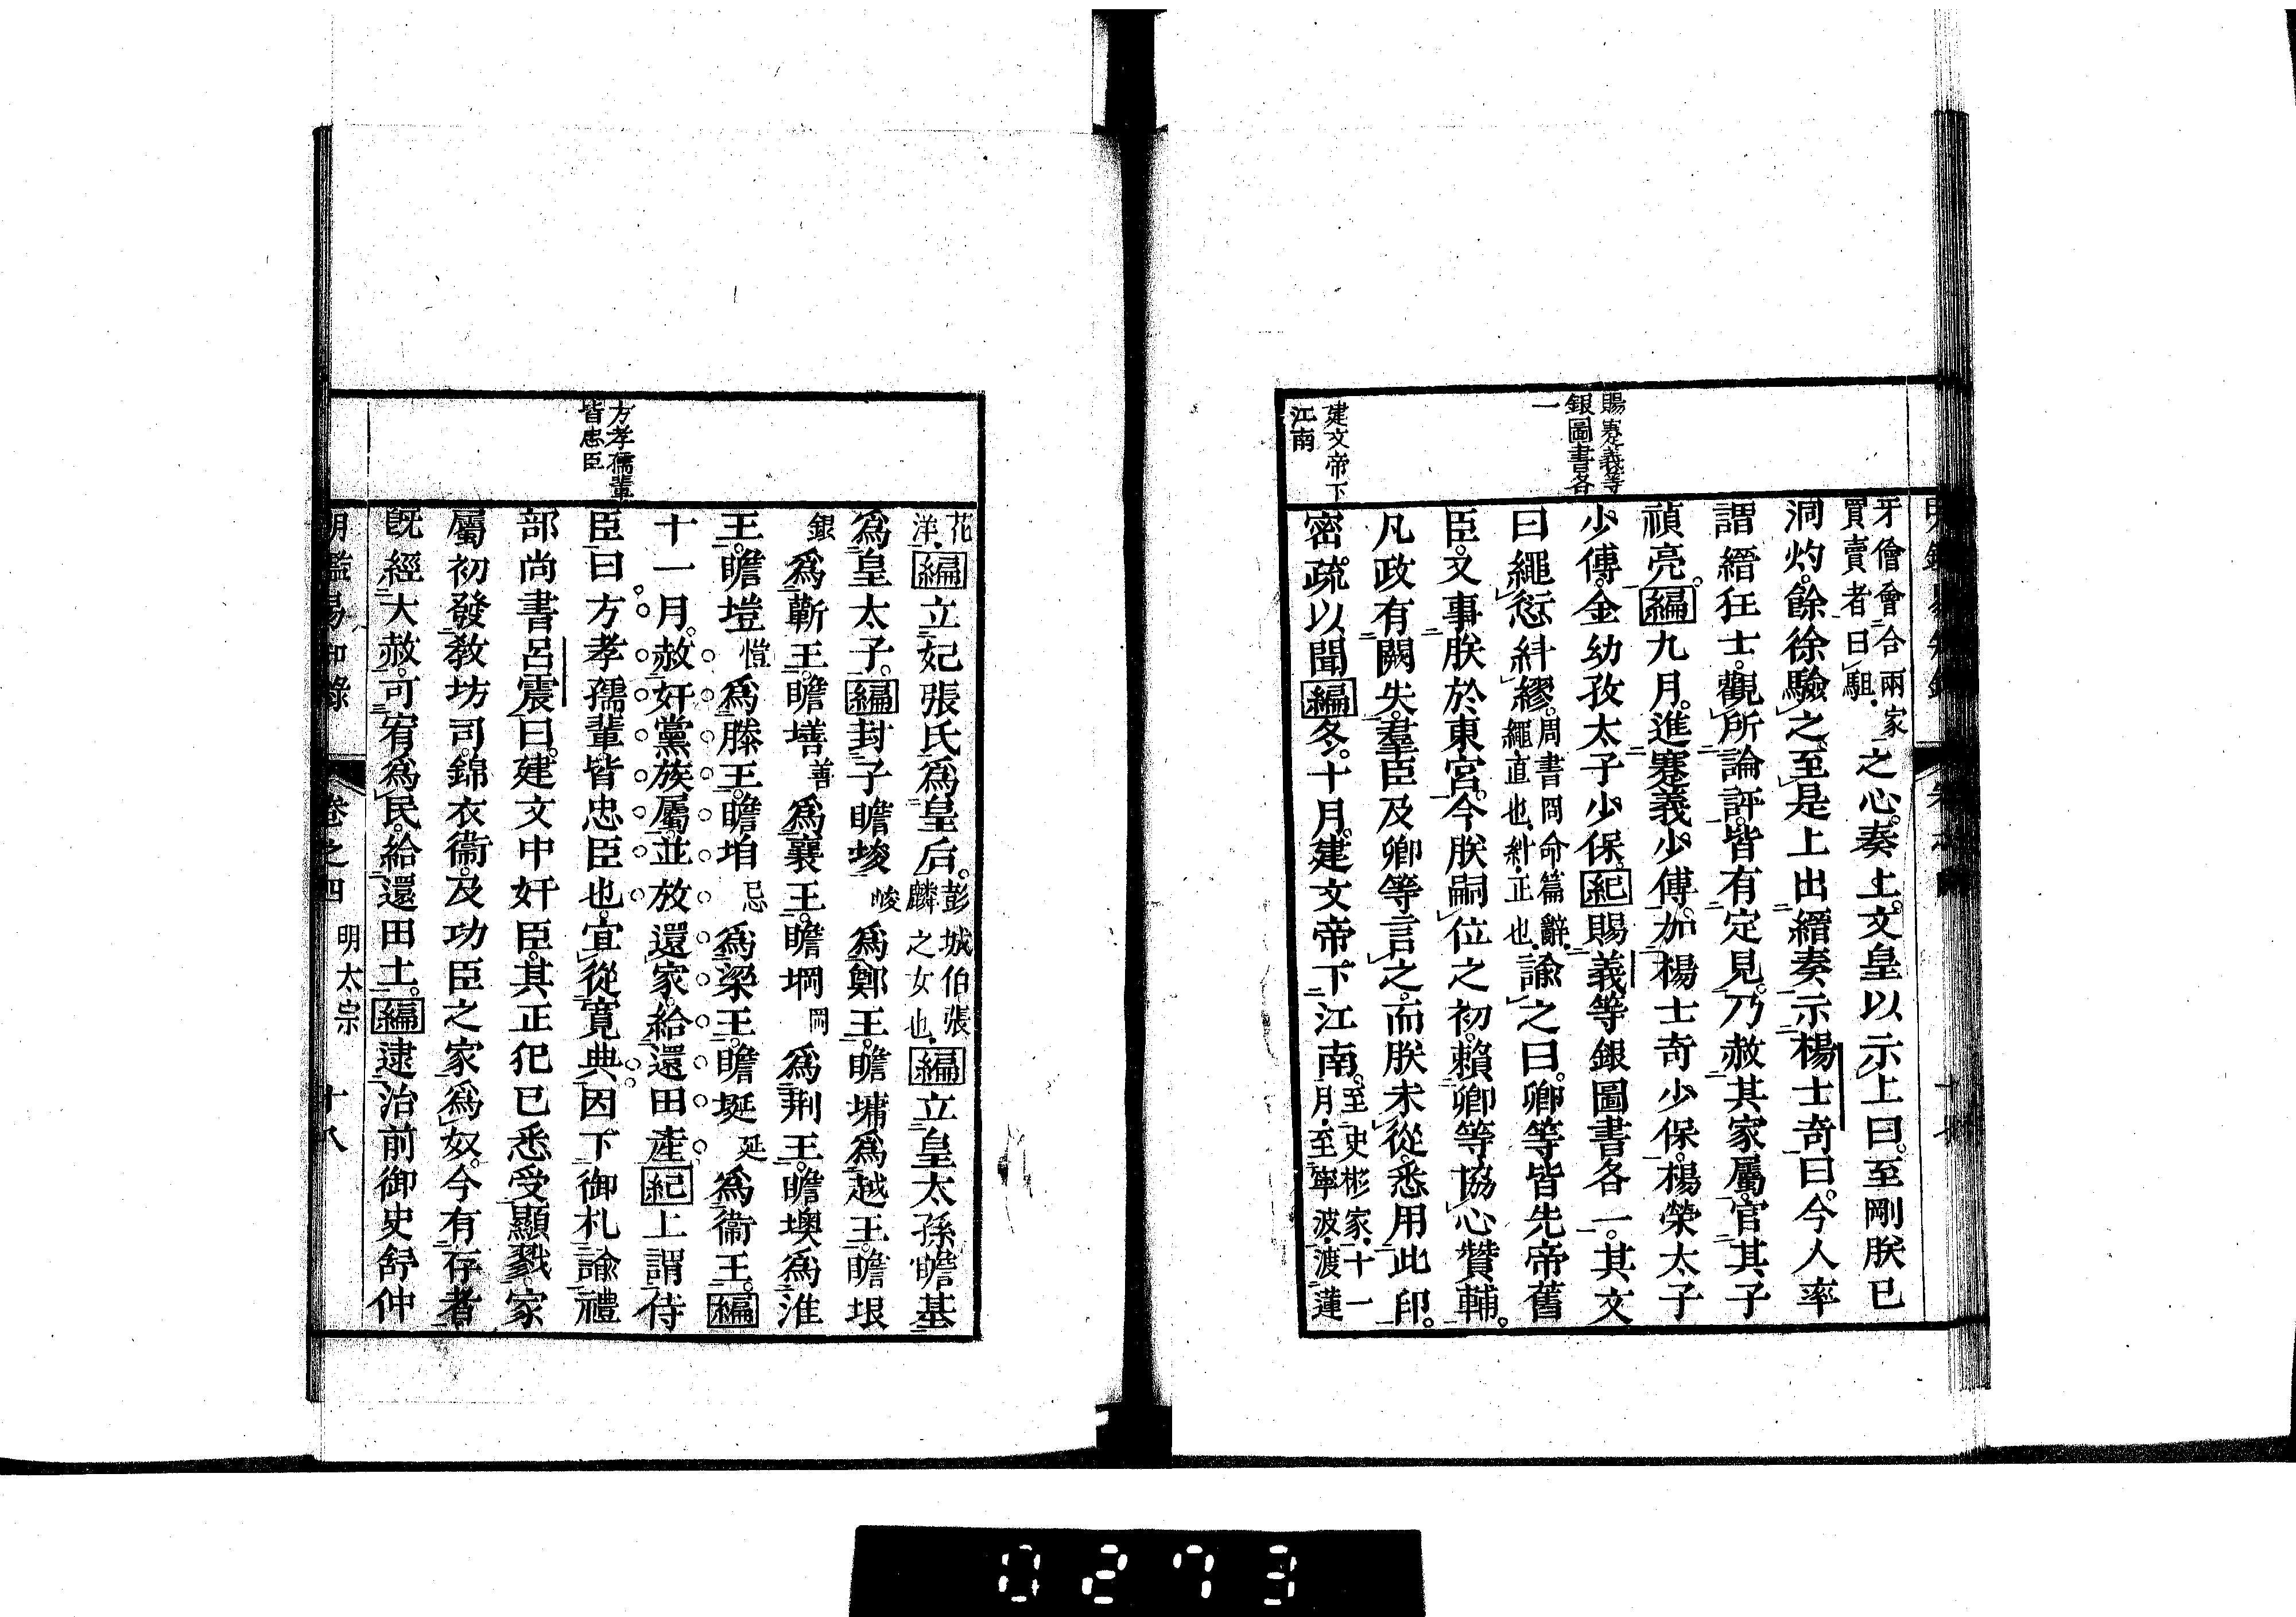 賜蹇義等
銀圖書各
一
建文帝下
江南
牙儈會合兩家
買賣者曰駔
之心奏上文皇以示上曰至剛朕已
洞灼餘徐驗之至是上出縉奏示楊士奇曰今人率
謂縉狂士觀所論評皆有定見乃赦其家屬官其子
禎亮編九月進蹇義少傅加楊士奇少保楊榮太子
少傅金幼孜太子少保紀賜義等銀圖書各一其文
曰繩愆糾繆周書冏命篇辭
繩直也糾正也
諭之曰卿等皆先帝舊
臣文事朕於東宮今朕嗣位之初賴卿等協心贊輔
凡政有闕失羣臣及卿等言之而朕未從悉用此印
密疏以聞編冬十月建文帝下江南至史彬家十一
月至寧波渡蓮
方孝孺輩
皆忠臣
花
洋
編立妃張氏為皇后彭城伯張
麟之女也
編立皇太孫瞻基
為皇太子編封子瞻埈峻為鄭王瞻墉為越王瞻垠
銀為蘄王瞻墡善為襄王瞻堈岡為荆王瞻墺為淮
王瞻塏愷為滕王瞻垍忌為梁王瞻埏延為衞王編
十一月赦奸黨族屬並放還家給還田產紀上謂侍
臣曰方孝孺輩皆忠臣也宜從寬典因下御札諭禮
部尚書呂震曰建文中奸臣其正犯已悉受顯戮家
屬初發教坊司錦衣衞及功臣之家為奴今有存者
既經大赦可宥為民給還田土編逮治前御史舒仲
明鑑易知錄 卷之四 明太宗 十八